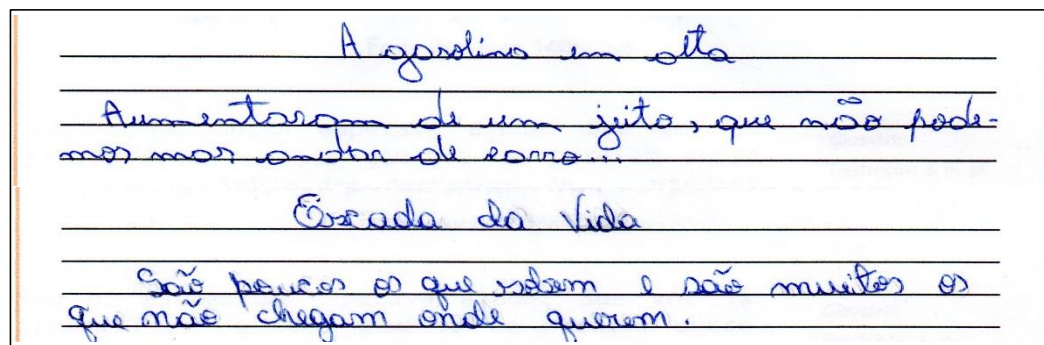 A gasolina em alta
Aumentaram de um jeito, que não pode-
mos mas andar de carro...
Escada da Vida
São poucos os que sobem e são muitos os
que não chegam onde querem.